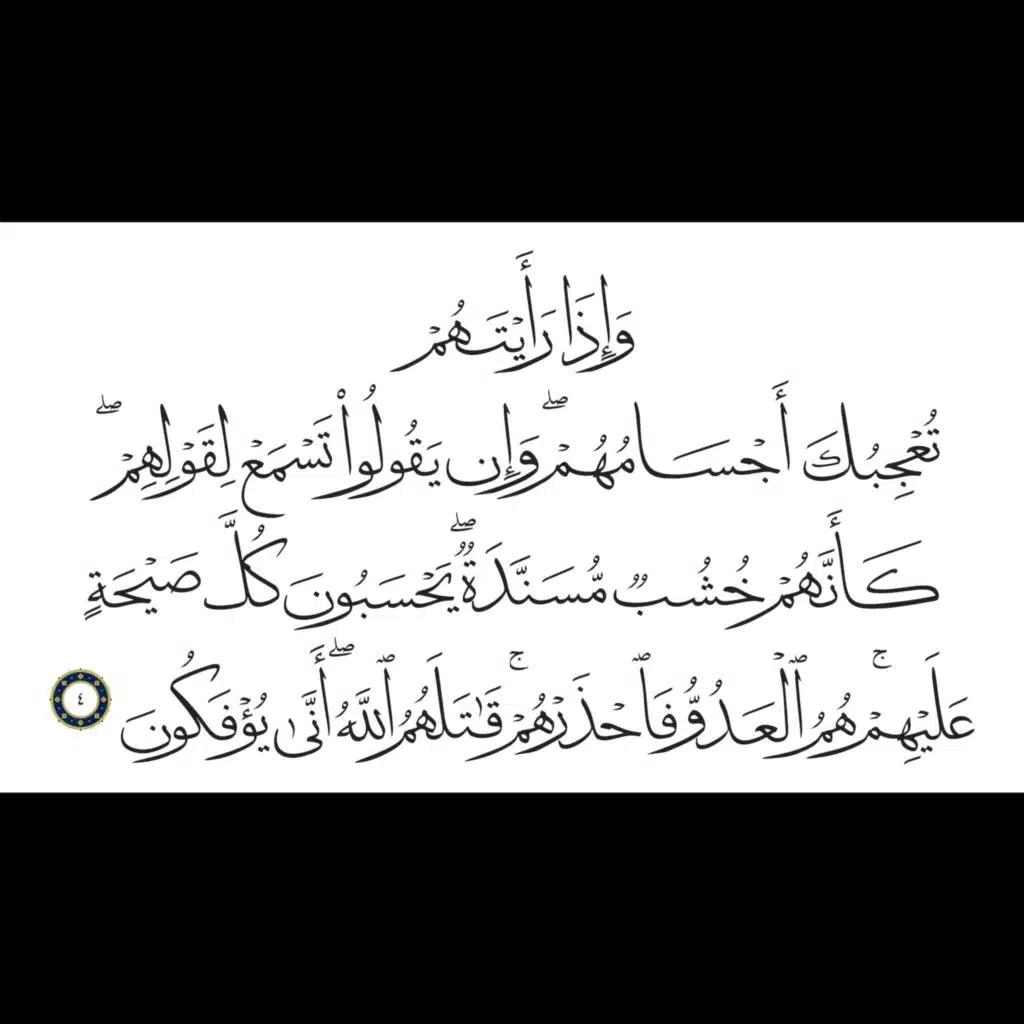 وَإِذَا رَأَيْتَهُمْ
تُعْجِبُكَ أَجْسَامُهُمْ ۖ وَإِن يَقُولُوا۟ تَسْمَعْ لِقَوْلِهِمْ ۖ
كَأَنَّهُمْ خُشُبٌ مُّسَنَّدَةٌ ۖ يَحْسَبُونَ كُلَّ صَيْحَةٍ
عَلَيْهِمْ ۚ هُمُ ٱلْعَدُوُّ فَٱحْذَرْهُمْ ۚ قَـٰتَلَهُمُ ٱللَّهُ ۖ أَنَّىٰ يُؤْفَكُونَ ٤